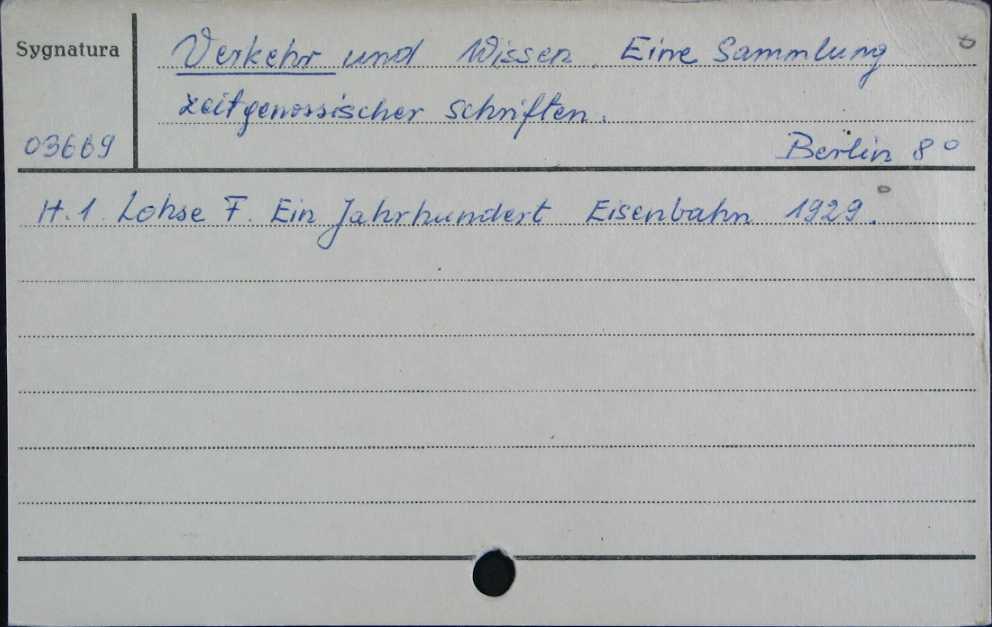 Sygnatura
Verkehr und Wissen. Eine Sammlung
zeitgenossischer Schriften.
03669
Berlin 8°
H.1. Lohse F. Ein Jahrhundert Eisenbahn 1929.